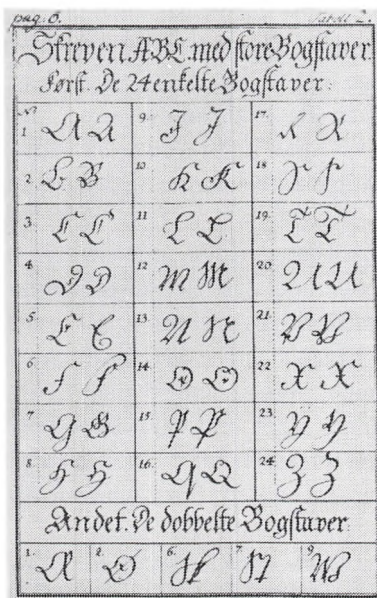 pag. 6.
Skreven ABC. med store Bogstaver
Først. De 24 enkelte Bogstaver:
1. A A 9. J J 17. R R
2. B B 10. K K 18. S S
3. C C 11. L L 19. T T
4. D D 12. M M 20. U U
5. E E 13. N N 21. V V
6. F F 14. O O 22. X X
7. G G 15. P P 23. Y Y
8. H H 16. Q Q 24. Z Z
Andet. De dobbelte Bogstaver
1. Æ 2. Ø 6. Sk 7. St 9. W